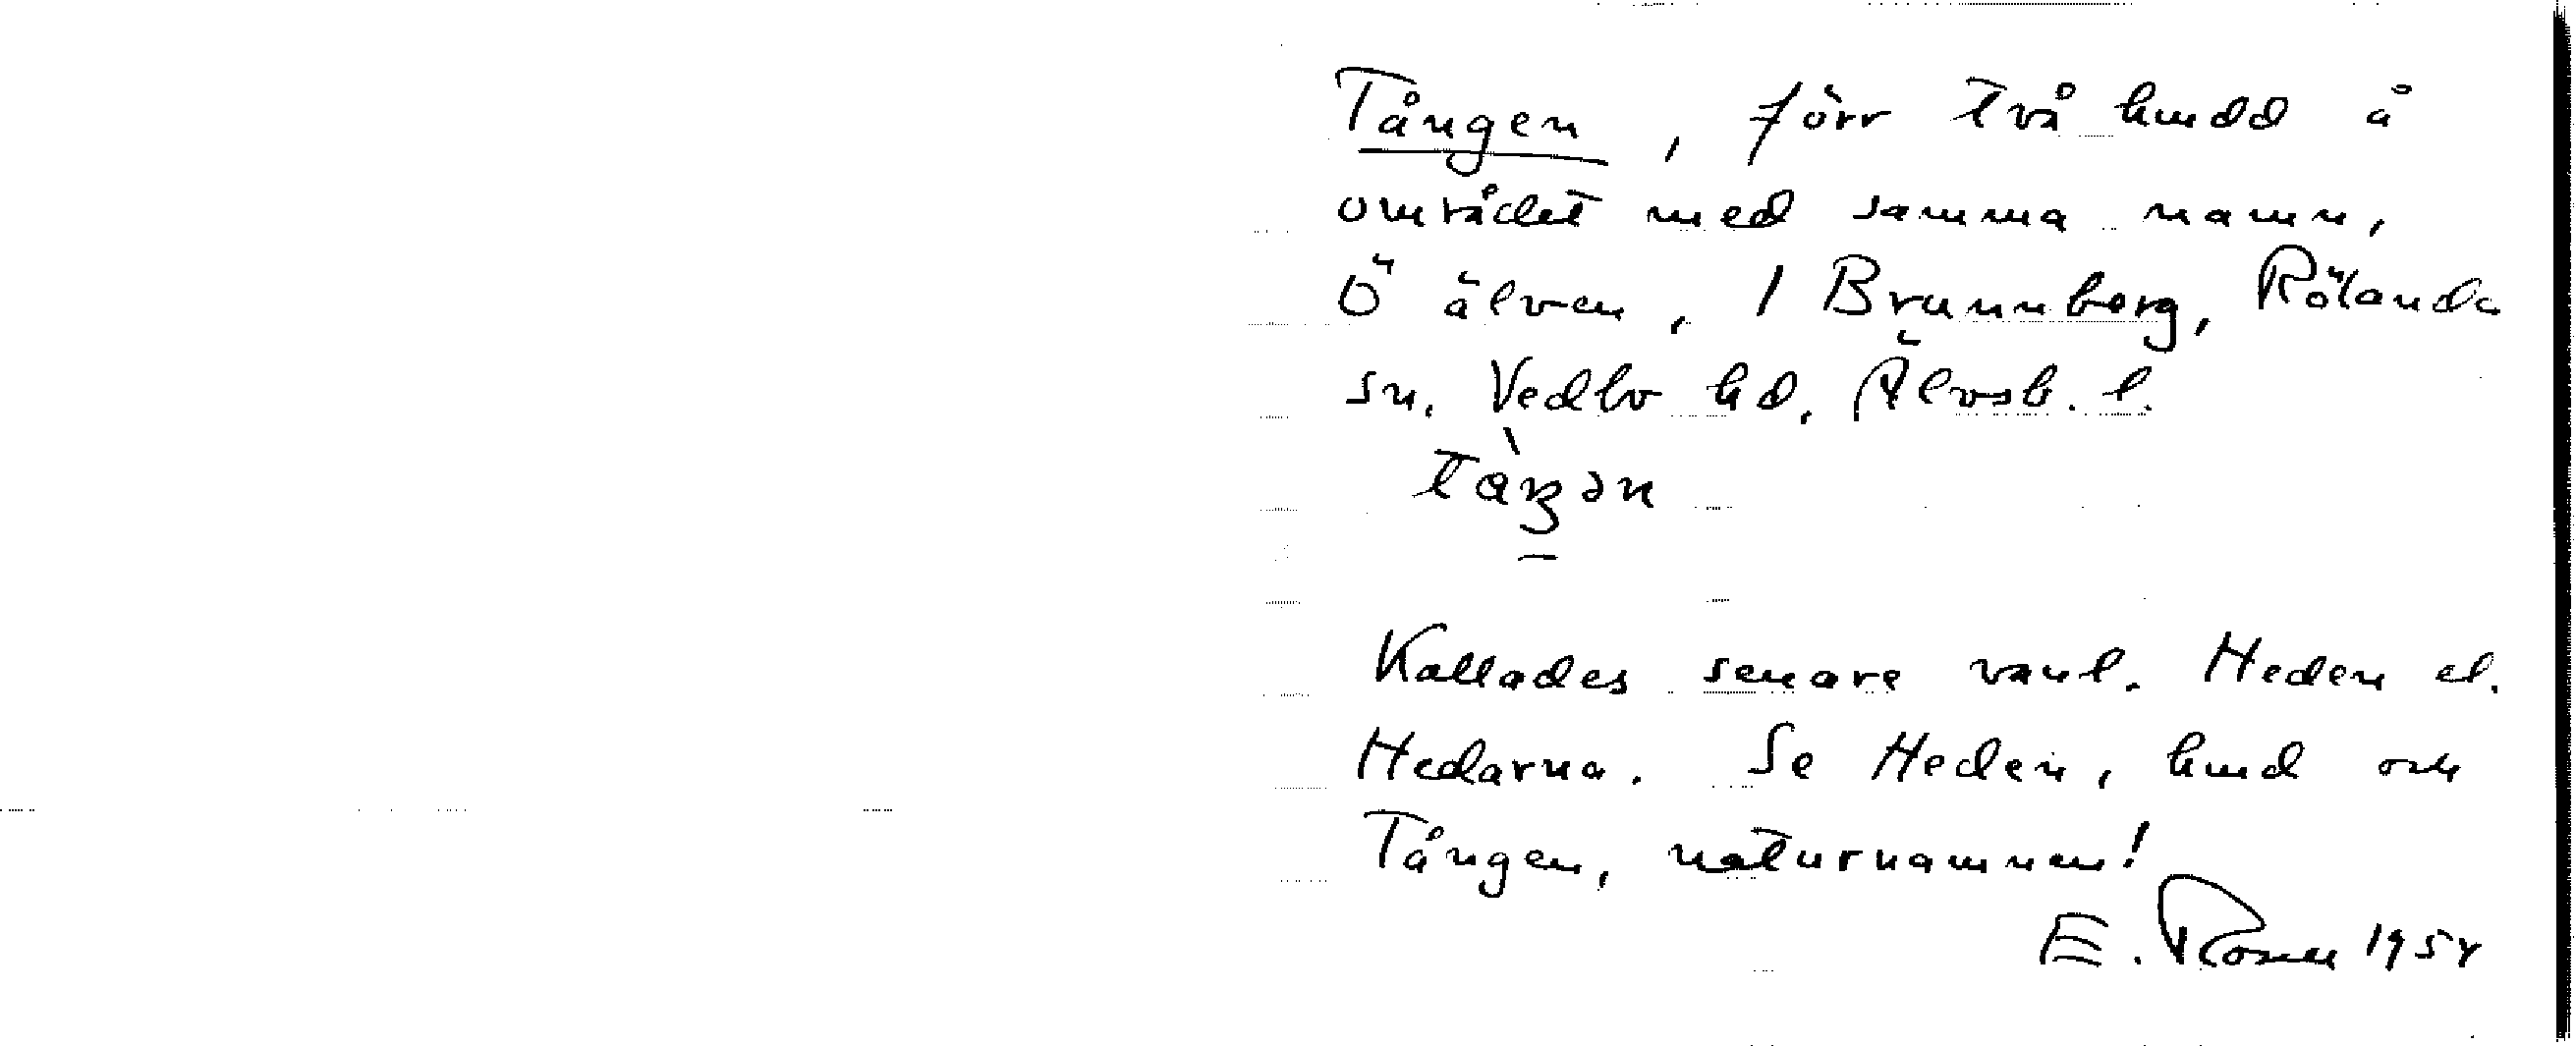 Tången, förr två hmdd å
området med samma namn,
Ö älven, 1 Brunnberg, Rölanda
sn. Vedbo hd. Älvsb. l.
Kallades senare vanl. Heden el.
Hedarna. Se Heden, hmd och
Tången, naturnamnen!
E. Rosell 1954